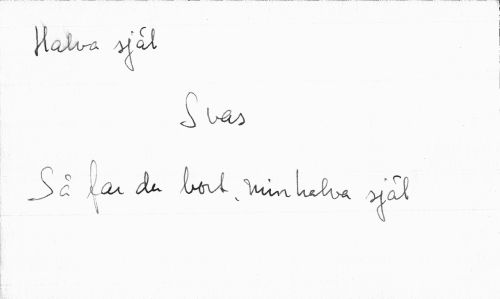 Halva själ
Svas
Så far du bort, min halva själ